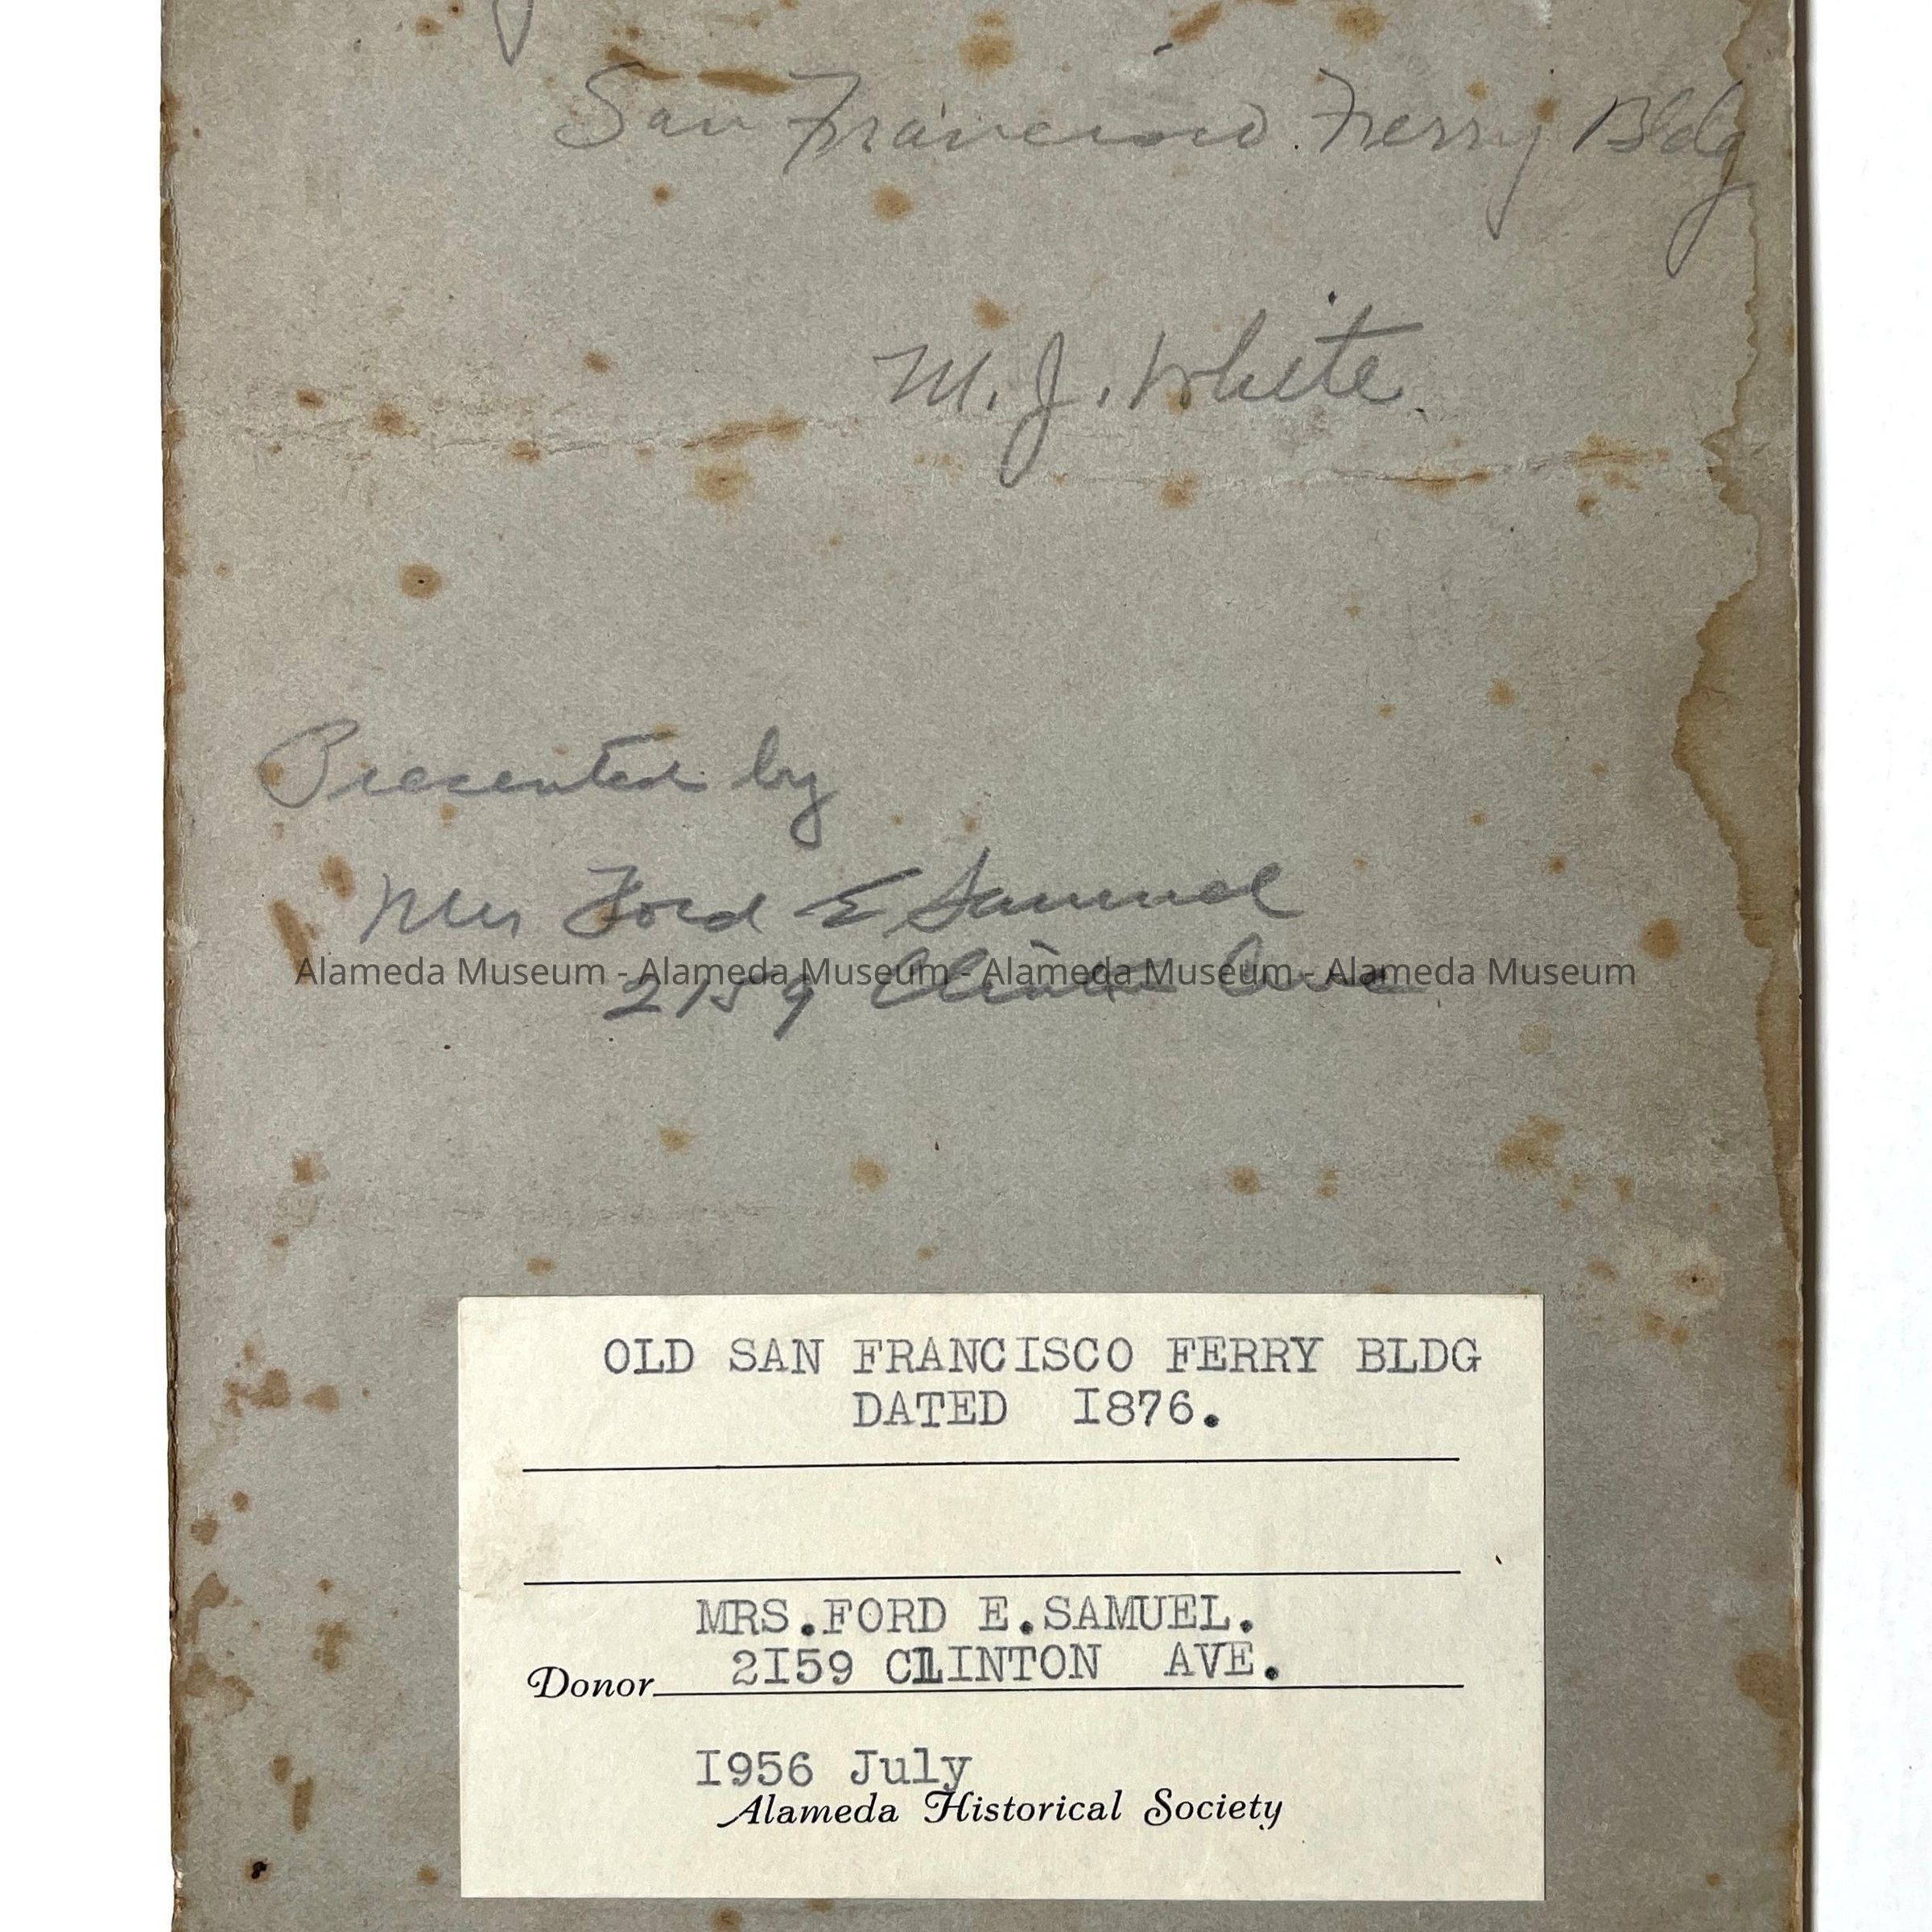 San Francisco Ferry Bldg
M. J. White
Presented by
Mrs Ford E Samuel
Alameda Museum - Alameda Museum - Alameda Museum - Alameda Museum
2159 Clinton Ave
OLD SAN FRANCISCO FERRY BLDG
DATED I876.
MRS.FORD E.SAMUEL.
2I59 CLINTON AVE.
Donor
I956 July
Alameda Historical Society